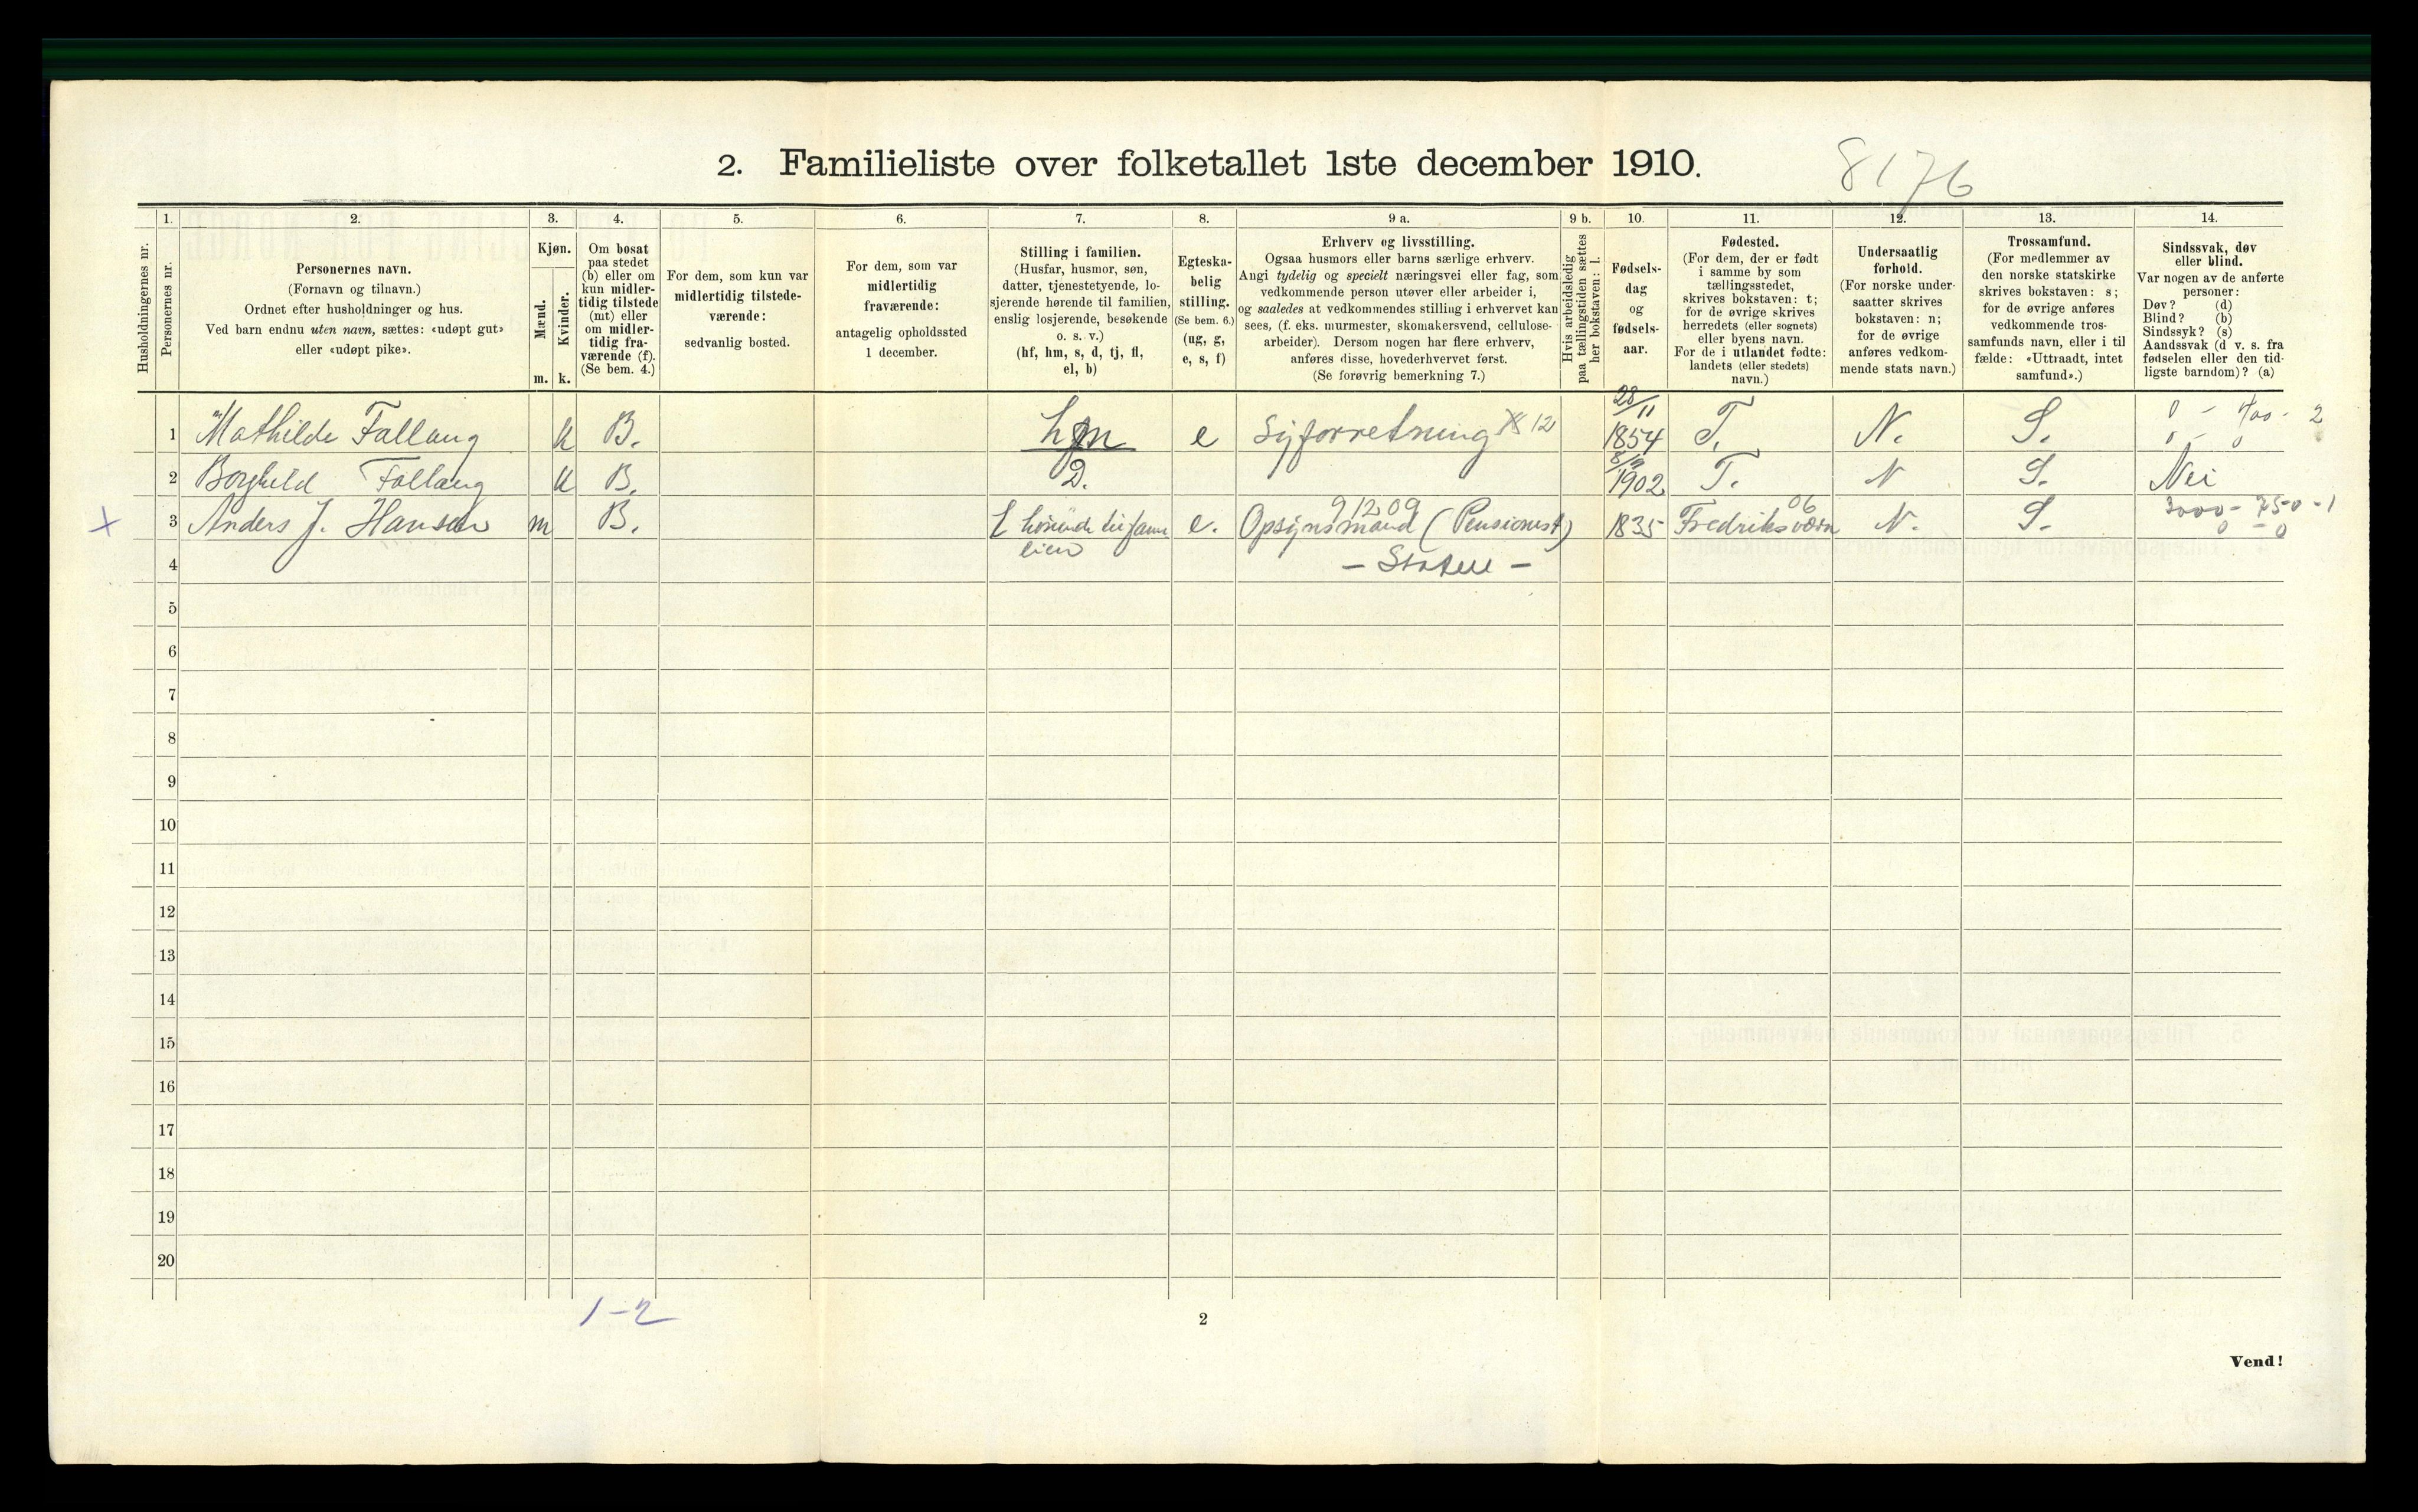 2. Familieliste over folketallet 1ste december 1910.
8176
Husholdningernes nr.
1.
Personernes nr.
2.
Personernes navn.
(Fornavn og tilnavn.)
Ordnet efter husholdninger og hus.
Ved barn endnu uten navn, sættes: «udøpt gut»
eller «udøpt pike».
3.
Kjøn.
Mænd.
m.
Kvinder.
k.
4.
Om bosat
paa stedet
(b) eller om
kun midler-
tidig tilstede
(mt) eller
om midler-
tidig fra-
værende (f).
(Se bem. 4.)
5.
For dem, som kun var
midlertidig tilstede-
værende:
sedvanlig bosted.
6.
For dem, som var
midlertidig
fraværende:
antagelig opholdssted
1 december.
7.
Stilling i familien.
(Husfar, husmor, søn,
datter, tjenestetyende, lo-
sjerende hørende til familien,
enslig losjerende, besøkende
o. s. v.)
(hf, hm, s, d, tj, fl,
el, b)
8.
Egteska-
belig
stilling.
(Se bem. 6.)
(ug, g,
e, s, f)
9 a.
Erhverv og livsstilling.
Ogsaa husmors eller barns særlige erhverv.
Angi tydelig og specielt næringsvei eller fag, som
vedkommende person utøver eller arbeider i,
og saaledes at vedkommendes stilling i erhvervet kan
sees, (f. eks. murmester, skomakersvend, cellulose-
arbeider). Dersom nogen har flere erhverv,
anføres disse, hovederhvervet først.
(Se forøvrig bemerkning 7.)
9 b.
Hvis arbeidsledig
paa tællingstiden sættes
her bokstaven: l.
10.
Fødsels-
dag
og
fødsels-
aar.
11.
Fødested.
(For dem, der er født
i samme by som
tællingsstedet,
skrives bokstaven: t;
for de øvrige skrives
herredets (eller sognets)
eller byens navn.
For de i utlandet fødte:
landets (eller stedets)
navn.)
12.
Undersaatlig
forhold.
(For norske under-
saatter skrives
bokstaven: n;
for de øvrige
anføres vedkom-
mende stats navn.)
13.
Trossamfund.
(For medlemmer av
den norske statskirke
skrives bokstaven: s;
for de øvrige anføres
vedkommende tros-
samfunds navn, eller i til
fælde: «Uttraadt, intet
samfund».)
14.
Sindssvak, døv
eller blind.
Var nogen av de anførte
personer:
Døv? (d)
Blind? (b)
Sindssyk? (s)
Aandssvak (d v. s. fra
fødselen eller den tid-
ligste barndom)? (a)
1 Mathilde Fallang k B. hm e Syforretning 12 28/11 1854 T. N. S. 0 - 400 - 2
0 - 0
2 Borghild Fallang k B. D. 1902 T. N S. Nei
X 3 Anders J. Hansen m B. L hörende til fami e. Opsynsmand (Pensionist) 91209 1835 Fredriksværn 06 N. S. 3000 - 750 - 1
0 - 0
lien - Staten -
4
5
6
7
8
9
10
11
12
13
14
15
16
17
18
19
20
1-2
2
Vend!